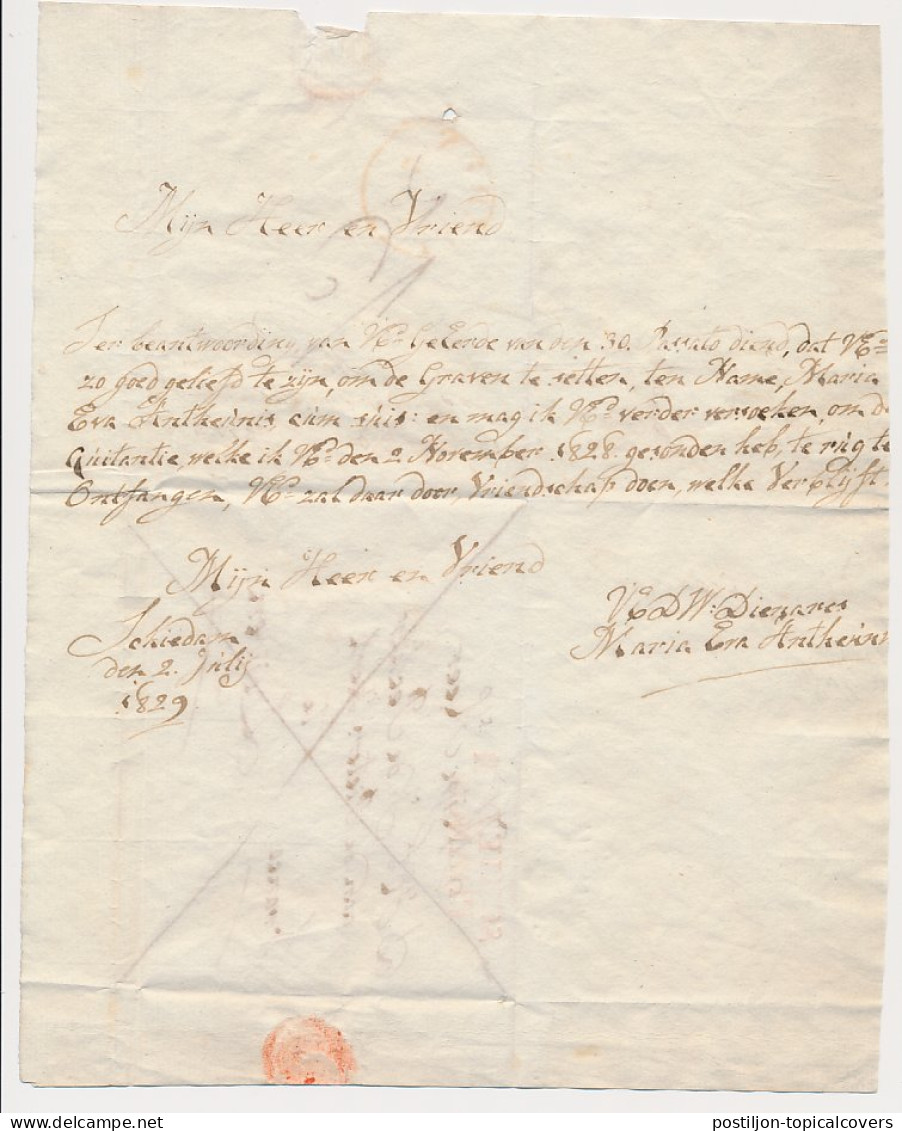 Mijn Heer en Vriend
Ter beantwoording van UEd Geëerde van den 30. Passato diend, dat UEd
zo goed geliefd te zijn, om de Graven te setten, ten Name, Maria
Eva Antheunis cum suis: en mag ik UEd verder versoeken, om de
Quitantie, welke ik UEd den 2. November 1828. gesonden heb, te rug te
Ontfangen, UEd zal daar door, Vriendschap doen, welke Verblijft.
Mijn Heer en Vriend
UEDW: Dienares
Maria Eva Antheunis
Schiedam
den 2. Julij
1829
postiljon-topicalcovers